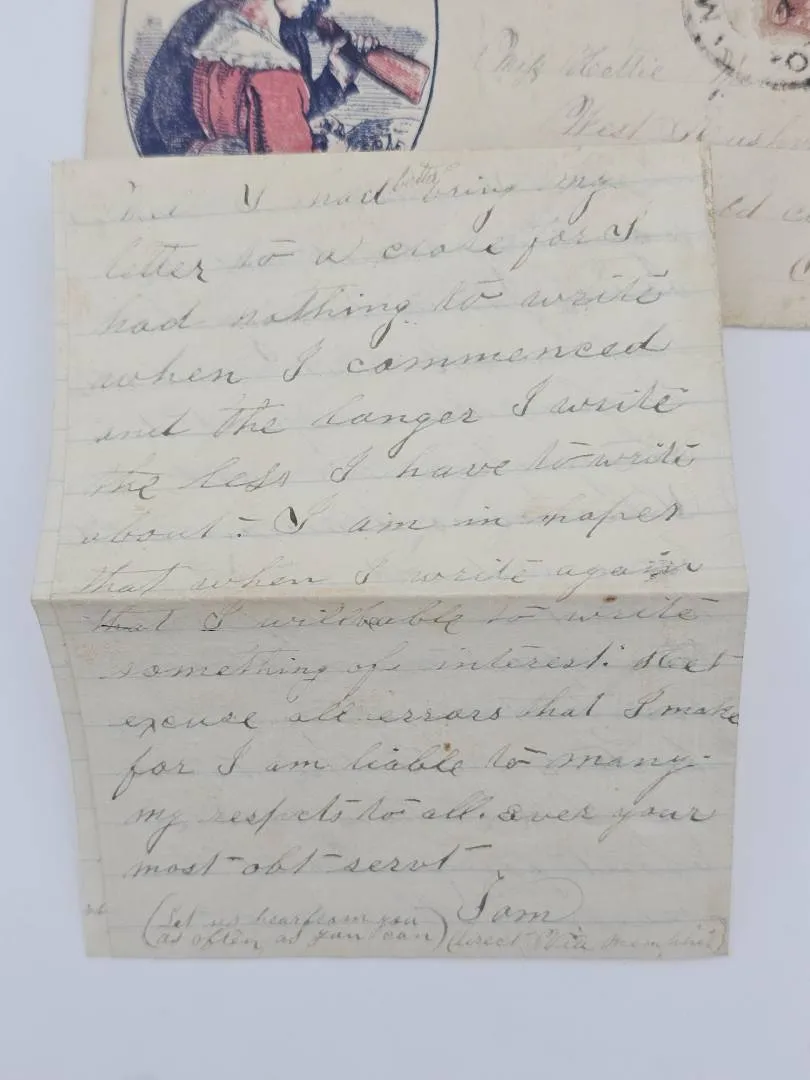 Miss Hettie
West
I had better bring my
letter to a close for I
had nothing to write
when I commenced
and the longer I write
the less I have to write
about. I am in hopes
that when I write again
that I will be able to write
something of interest. Het
excuse all errors that I make
for I am liable to many.
my respects to all. ever your
most obt servt
Tom
(Let us hear from you
as often as you can)
(direct Via Memphis)